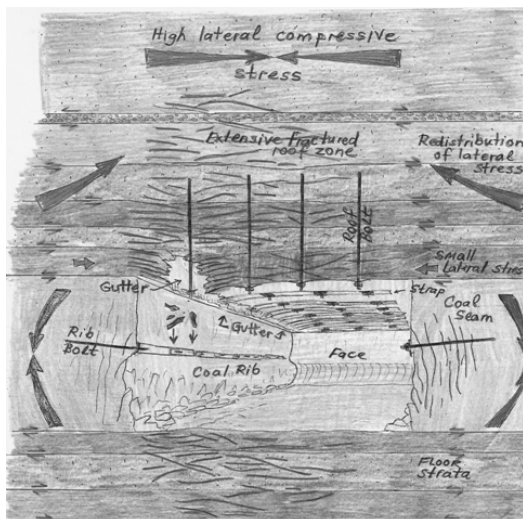 High lateral compressive
stress
Extensive fractured
roof zone
Redistribution
of lateral
stress
Roof
Bolt
Small
lateral stress
Gutter
Strap
Coal
Seam
Gutters
Rib
Bolt
Face
Coal Rib
Floor
Strata